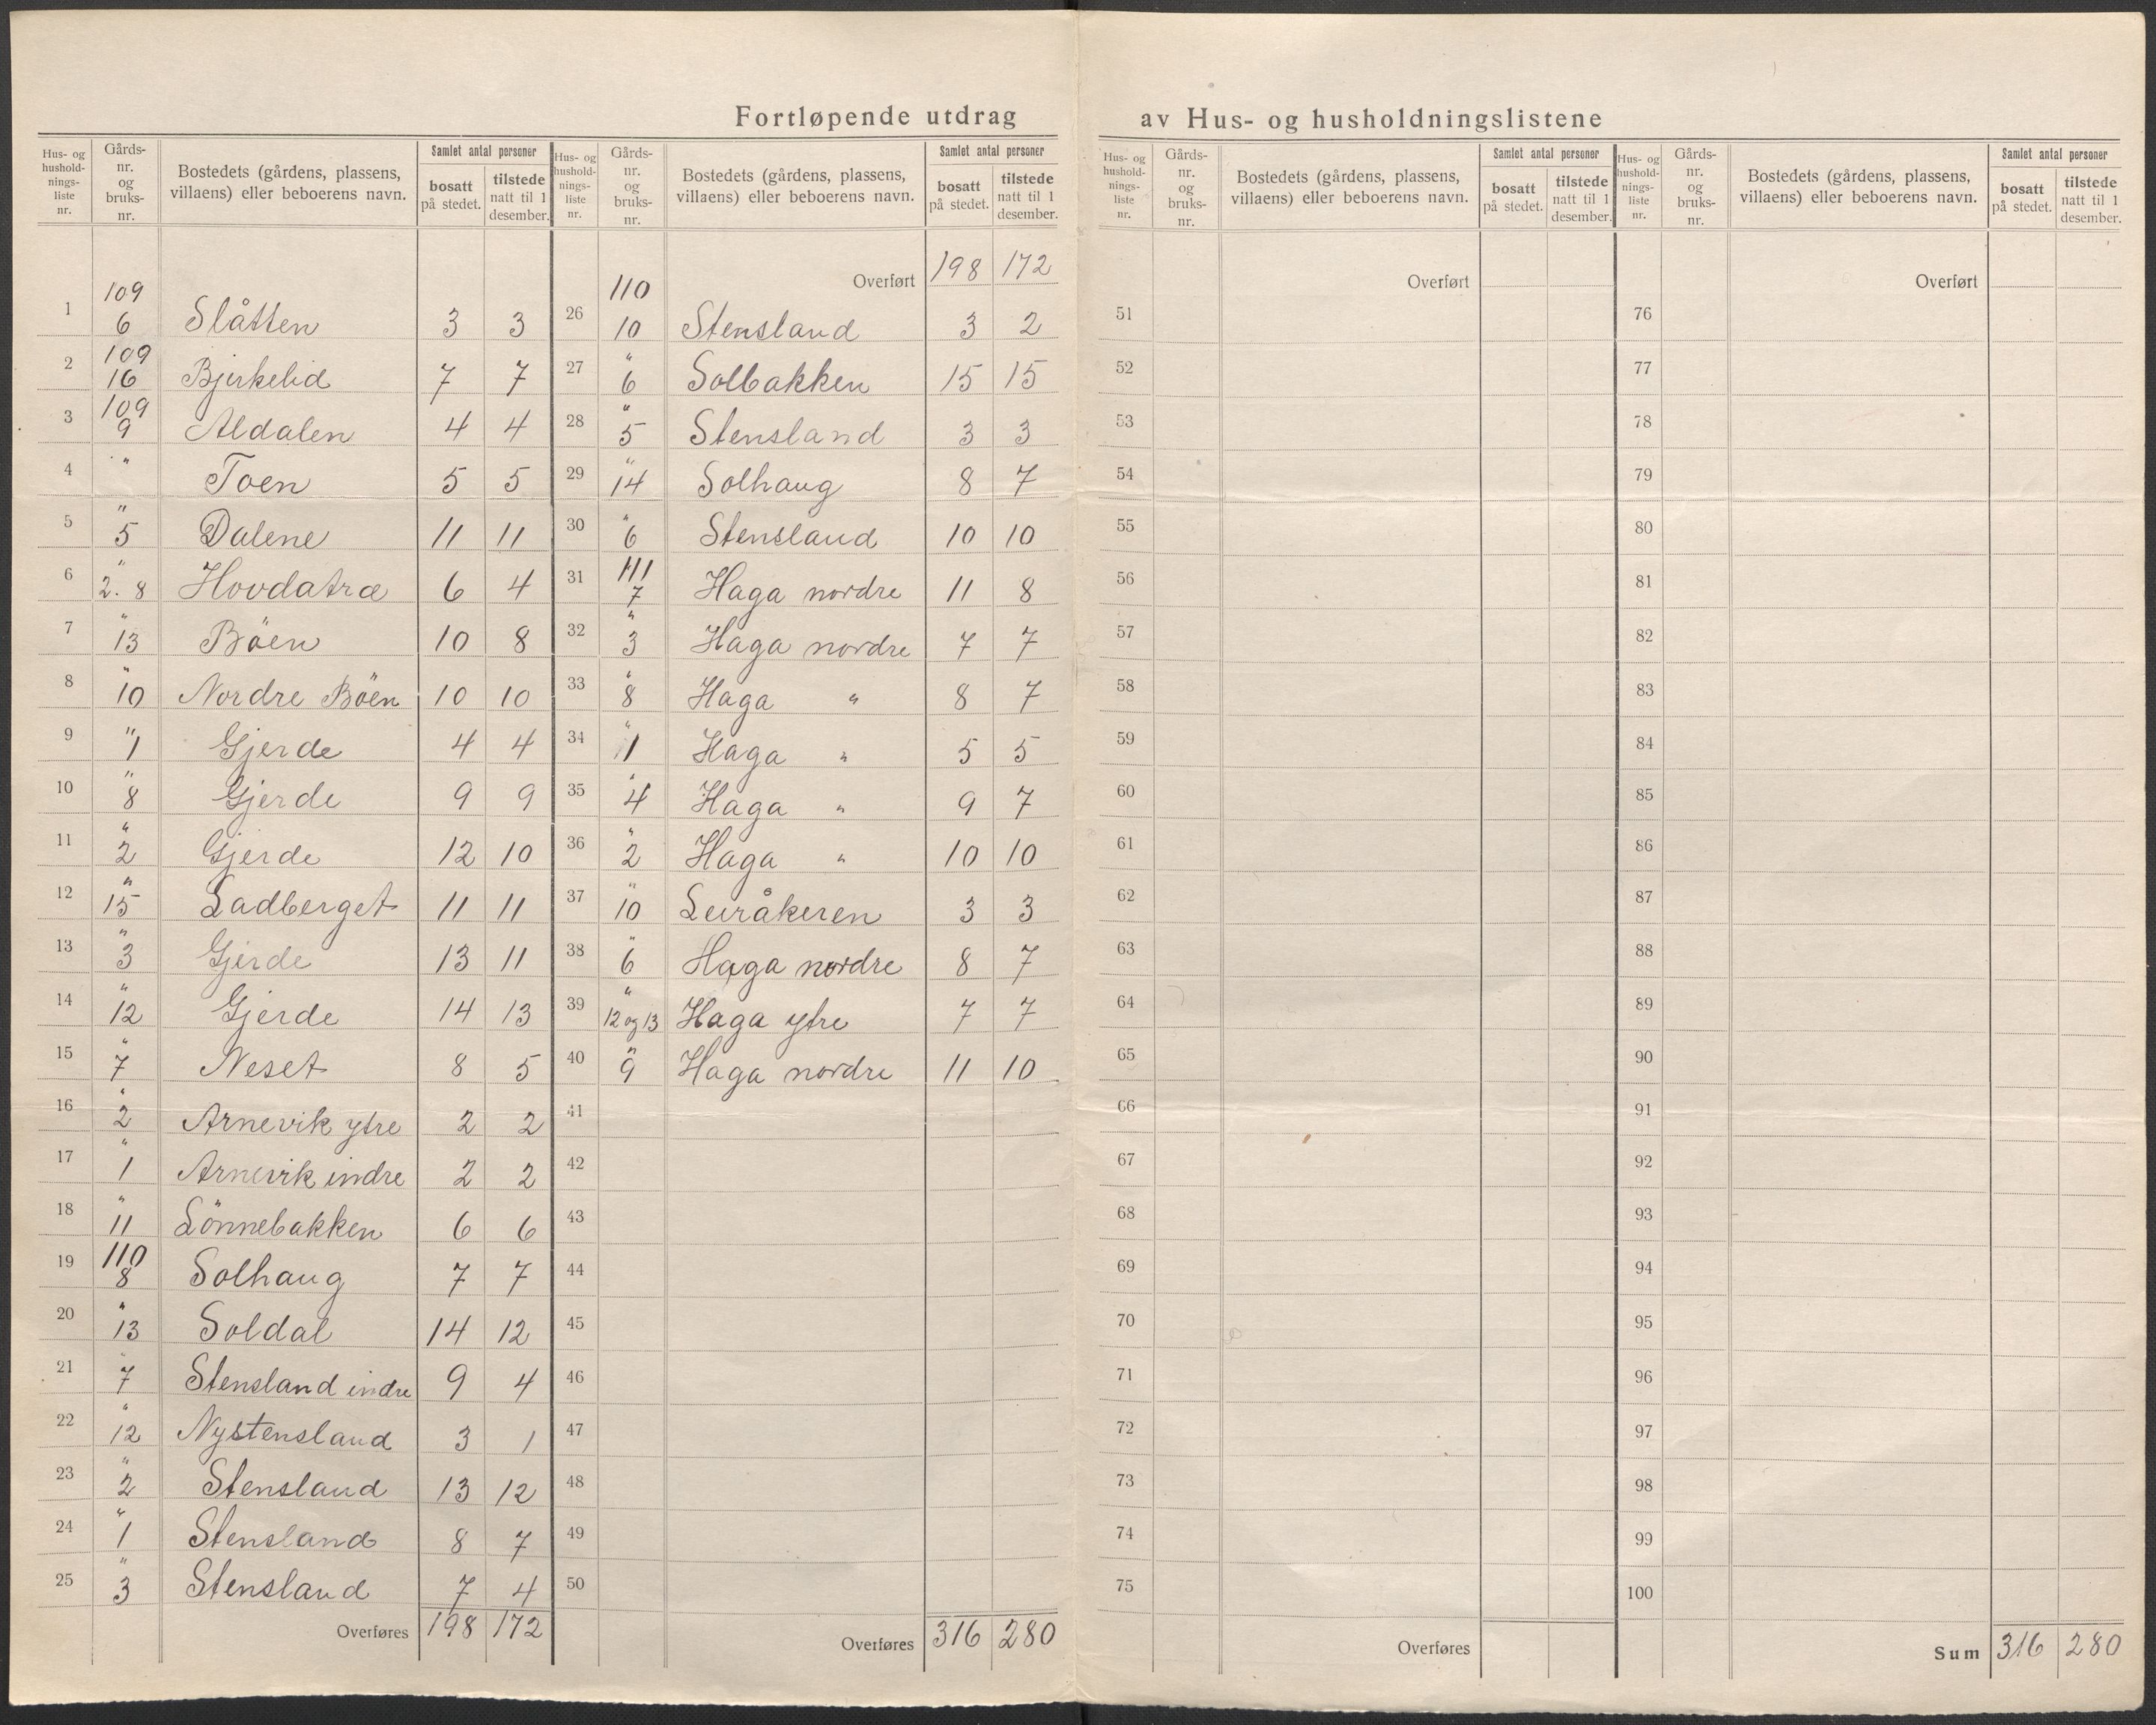 Fortløpende utdrag av Hus- og husholdningslistene
Hus- og hushold-nings-liste nr. | Gårds-nr. og bruks-nr. | Bostedets (gårdens, plassens, villaens) eller beboerens navn. | Samlet antal personer | bosatt på stedet. | tilstede natt til 1 desember.
1 | 109 6 | Slåtten | 3 | 3
2 | 109 16 | Bjerkelid | 7 | 7
3 | 109 9 | Aldalen | 4 | 4
4 | " | Toen | 5 | 5
5 | " 5 | Dalene | 11 | 11
6 | " 2. 8 | Hovdatræ | 6 | 4
7 | " 13 | Böen | 10 | 8
8 | " 10 | Nordre Böen | 10 | 10
9 | " 1 | Gjerde | 4 | 4
10 | " 8 | Gjerde | 9 | 9
11 | " 2 | Gjerde | 12 | 10
12 | " 15 | Ladberget | 11 | 11
13 | " 3 | Gjerde | 13 | 11
14 | " 12 | Gjerde | 14 | 13
15 | " 7 | Neset | 8 | 5
16 | " 2 | Arnevik ytre | 2 | 2
17 | " 1 | Arnevik indre | 2 | 2
18 | " 11 | Lönnebakken | 6 | 6
19 | 110 8 | Solhaug | 7 | 7
20 | " 13 | Soldal | 14 | 12
21 | " 7 | Stensland indre | 9 | 4
22 | " 12 | Nystensland | 3 | 1
23 | " 2 | Stensland | 13 | 12
24 | " 1 | Stensland | 8 | 7
25 | " 3 | Stensland | 7 | 4
Overføres | 198 | 172
Hus- og hushold-nings-liste nr. | Gårds-nr. og bruks-nr. | Bostedets (gårdens, plassens, villaens) eller beboerens navn. | Samlet antal personer | bosatt på stedet. | tilstede natt til 1 desember.
Overført | 198 | 172
26 | 110 10 | Stensland | 3 | 2
27 | " 6 | Solbakken | 15 | 15
28 | " 5 | Stensland | 3 | 3
29 | " 14 | Solhaug | 8 | 7
30 | " 6 | Stensland | 10 | 10
31 | 111 7 | Haga nordre | 11 | 8
32 | " 3 | Haga nordre | 7 | 7
33 | " 8 | Haga " | 8 | 7
34 | " 1 | Haga " | 5 | 5
35 | " 4 | Haga " | 9 | 7
36 | " 2 | Haga " | 10 | 10
37 | " 10 | Leiråkeren | 3 | 3
38 | " 6 | Haga nordre | 8 | 7
39 | " 12 og 13 | Haga ytre | 7 | 7
40 | " 9 | Haga nordre | 11 | 10
41
42
43
44
45
46
47
48
49
50
Overføres | 316 | 280
Hus- og hushold-nings-liste nr. | Gårds-nr. og bruks-nr. | Bostedets (gårdens, plassens, villaens) eller beboerens navn. | Samlet antal personer | bosatt på stedet. | tilstede natt til 1 desember.
Overført
51
52
53
54
55
56
57
58
59
60
61
62
63
64
65
66
67
68
69
70
71
72
73
74
75
Overføres
Hus- og hushold-nings-liste nr. | Gårds-nr. og bruks-nr. | Bostedets (gårdens, plassens, villaens) eller beboerens navn. | Samlet antal personer | bosatt på stedet. | tilstede natt til 1 desember.
Overført
76
77
78
79
80
81
82
83
84
85
86
87
88
89
90
91
92
93
94
95
96
97
98
99
100
Sum | 316 | 280